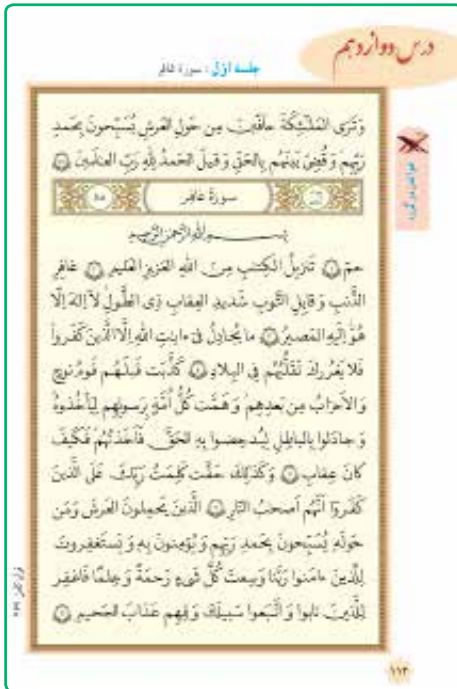 درس دوازدهم
جلسه اوّل : سورهٔ غافر
وَتَرَى المَلٰئِكَةَ حافّينَ مِن حَولِ العَرشِ يُسَبِّحونَ بِحَمدِ
رَبِّهِم وَ قُضِىَ بَينَهُم بِالحَقِّ وَ قيلَ الحَمدُ لِلّٰهِ رَبِّ العٰلَمينَ
سورة غافر
بِسمِ اللهِ الرَّحمٰنِ الرَّحيمِ
حم ۱ تَنزيلُ الكِتٰبِ مِنَ اللهِ العَزيزِ العَليمِ ۲ غافِرِ
الذَّنبِ وَ قابِلِ التَّوبِ شَديدِ العِقابِ ذِى الطَّولِ لآ اِلٰهَ اِلّا
هُوَ اِلَيهِ المَصيرُ ۳ ما يُجادِلُ فى ءايٰتِ اللهِ اِلَّا الَّذينَ كَفَروا
فَلا يَغرُركَ تَقَلُّبُهُم فِى البِلادِ ۴ كَذَّبَت قَبلَهُم قَومُ نوحٍ
وَ الاَحزابُ مِن بَعدِهِم وَ هَمَّت كُلُّ اُمَّةٍ بِرَسولِهِم لِيَأخُذوهُ
وَ جادَلوا بِالباطِلِ لِيُدحِضوا بِهِ الحَقَّ فَاَخَذتُهُم فَكَيفَ
كانَ عِقابِ ۵ وَ كَذٰلِكَ حَقَّت كَلِمَتُ رَبِّكَ عَلَى الَّذينَ
كَفَروا اَنَّهُم اَصحٰبُ النّارِ ۶ اَلَّذينَ يَحمِلونَ العَرشَ وَ مَن
حَولَهو يُسَبِّحونَ بِحَمدِ رَبِّهِم وَ يُؤمِنونَ بِهى وَ يَستَغفِرونَ
لِلَّذينَ ءامَنوا رَبَّنا وَسِعتَ كُلَّ شَىءٍ رَحمَةً وَ عِلمًا فَاغفِر
لِلَّذينَ تابوا وَ اتَّبَعوا سَبيلَكَ وَ قِهِم عَذابَ الجَحيمِ ۷
۱۱۳